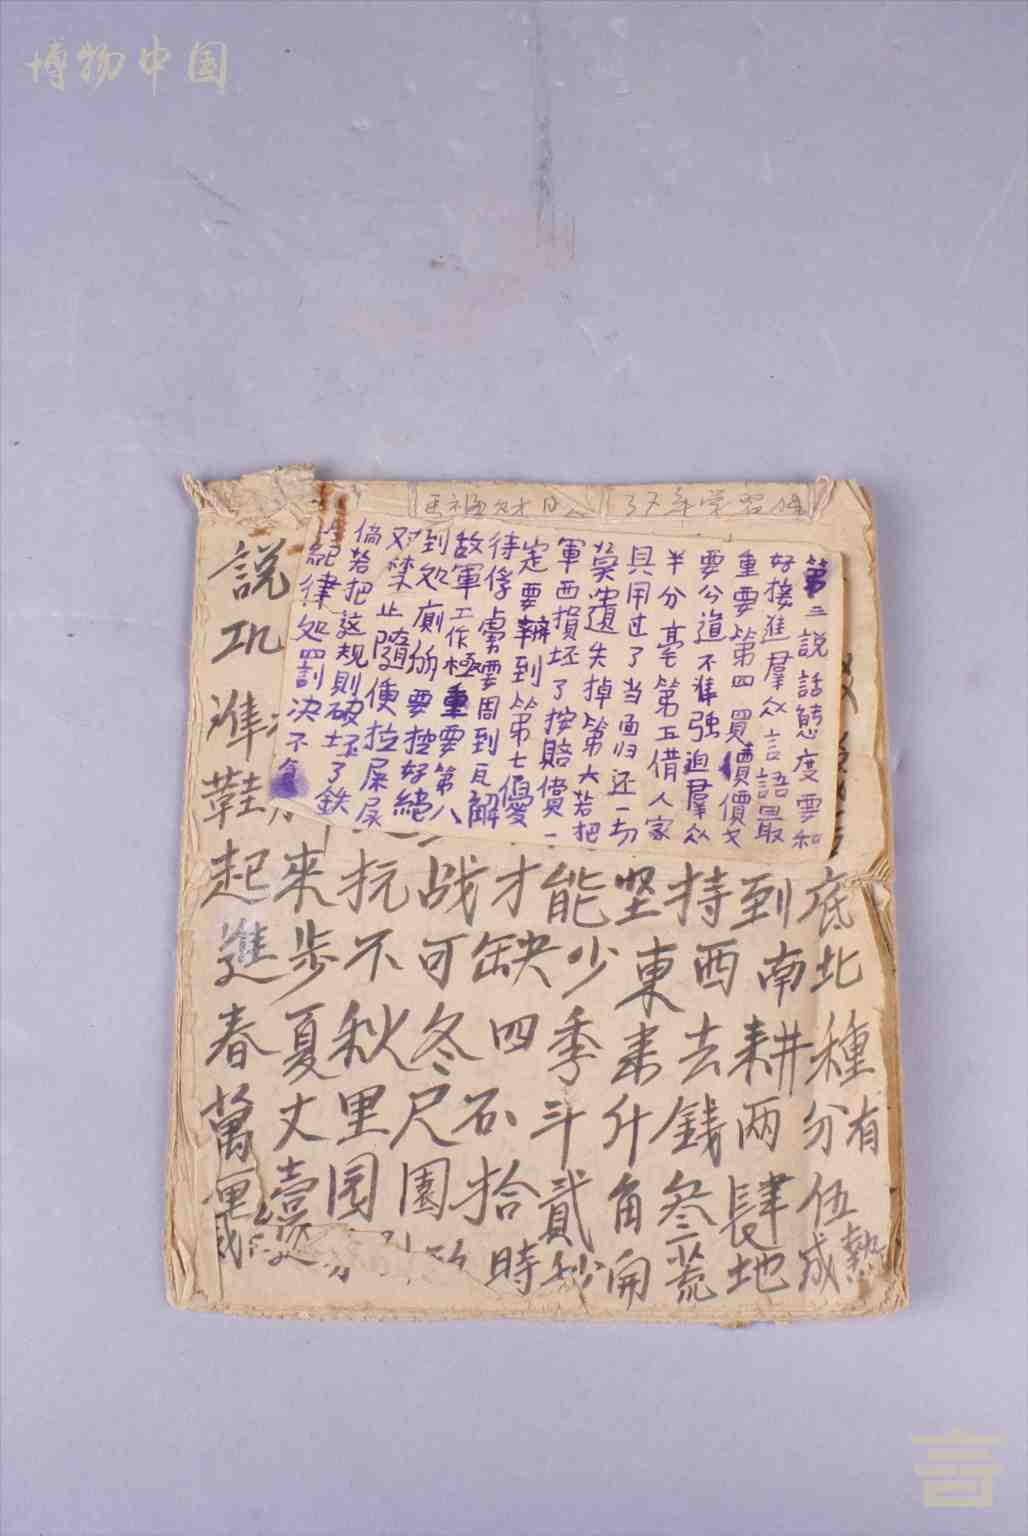 博物中国
第三說話態度要和
好接進羣众言語最
重要第四買賣價
要公道不準强迫羣众
半分毫第五借人家
具用过了当面归还一切
莫遺失掉第六若把
軍西損坯了按賠償一
定要辦到第七優
待俘虜要周到瓦解
敵軍工作極重要第八
到处廁所要挖好絕
对禁止隨便拉屎尿
倘若把这規則破坯了鉄
紀律处罰决不
說
準
鞋
起來抗战才能坚持到底
進步不可缺少東西南北
春夏秋冬四季来去耕種
萬丈里尺石斗升錢两分有
厘壹园園拾貳角叁肆伍
時秒開荒地成熟
言